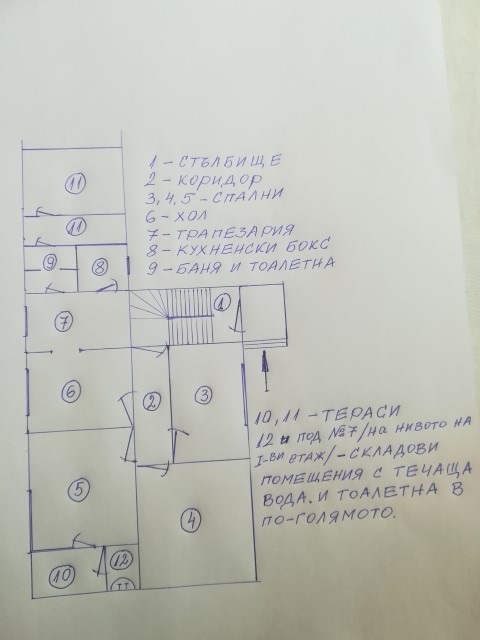 1 – СТЪЛБИЩЕ
2 – КОРИДОР
3, 4, 5 – СПАЛНИ
6 – ХОЛ
7 – ТРАПЕЗАРИЯ
8 – КУХНЕНСКИ БОКС
9 – БАНЯ И ТОАЛЕТНА
11
11
9
8
7
1
6
2
3
5
4
10
12
ТТ
10, 11 – ТЕРАСИ
12 и ПОД №7 /НА НИВОТО НА
I-ВИ ЕТАЖ/ – СКЛАДОВИ
ПОМЕЩЕНИЯ С ТЕЧАЩА
ВОДА. И ТОАЛЕТНА В
ПО-ГОЛЯМОТО.